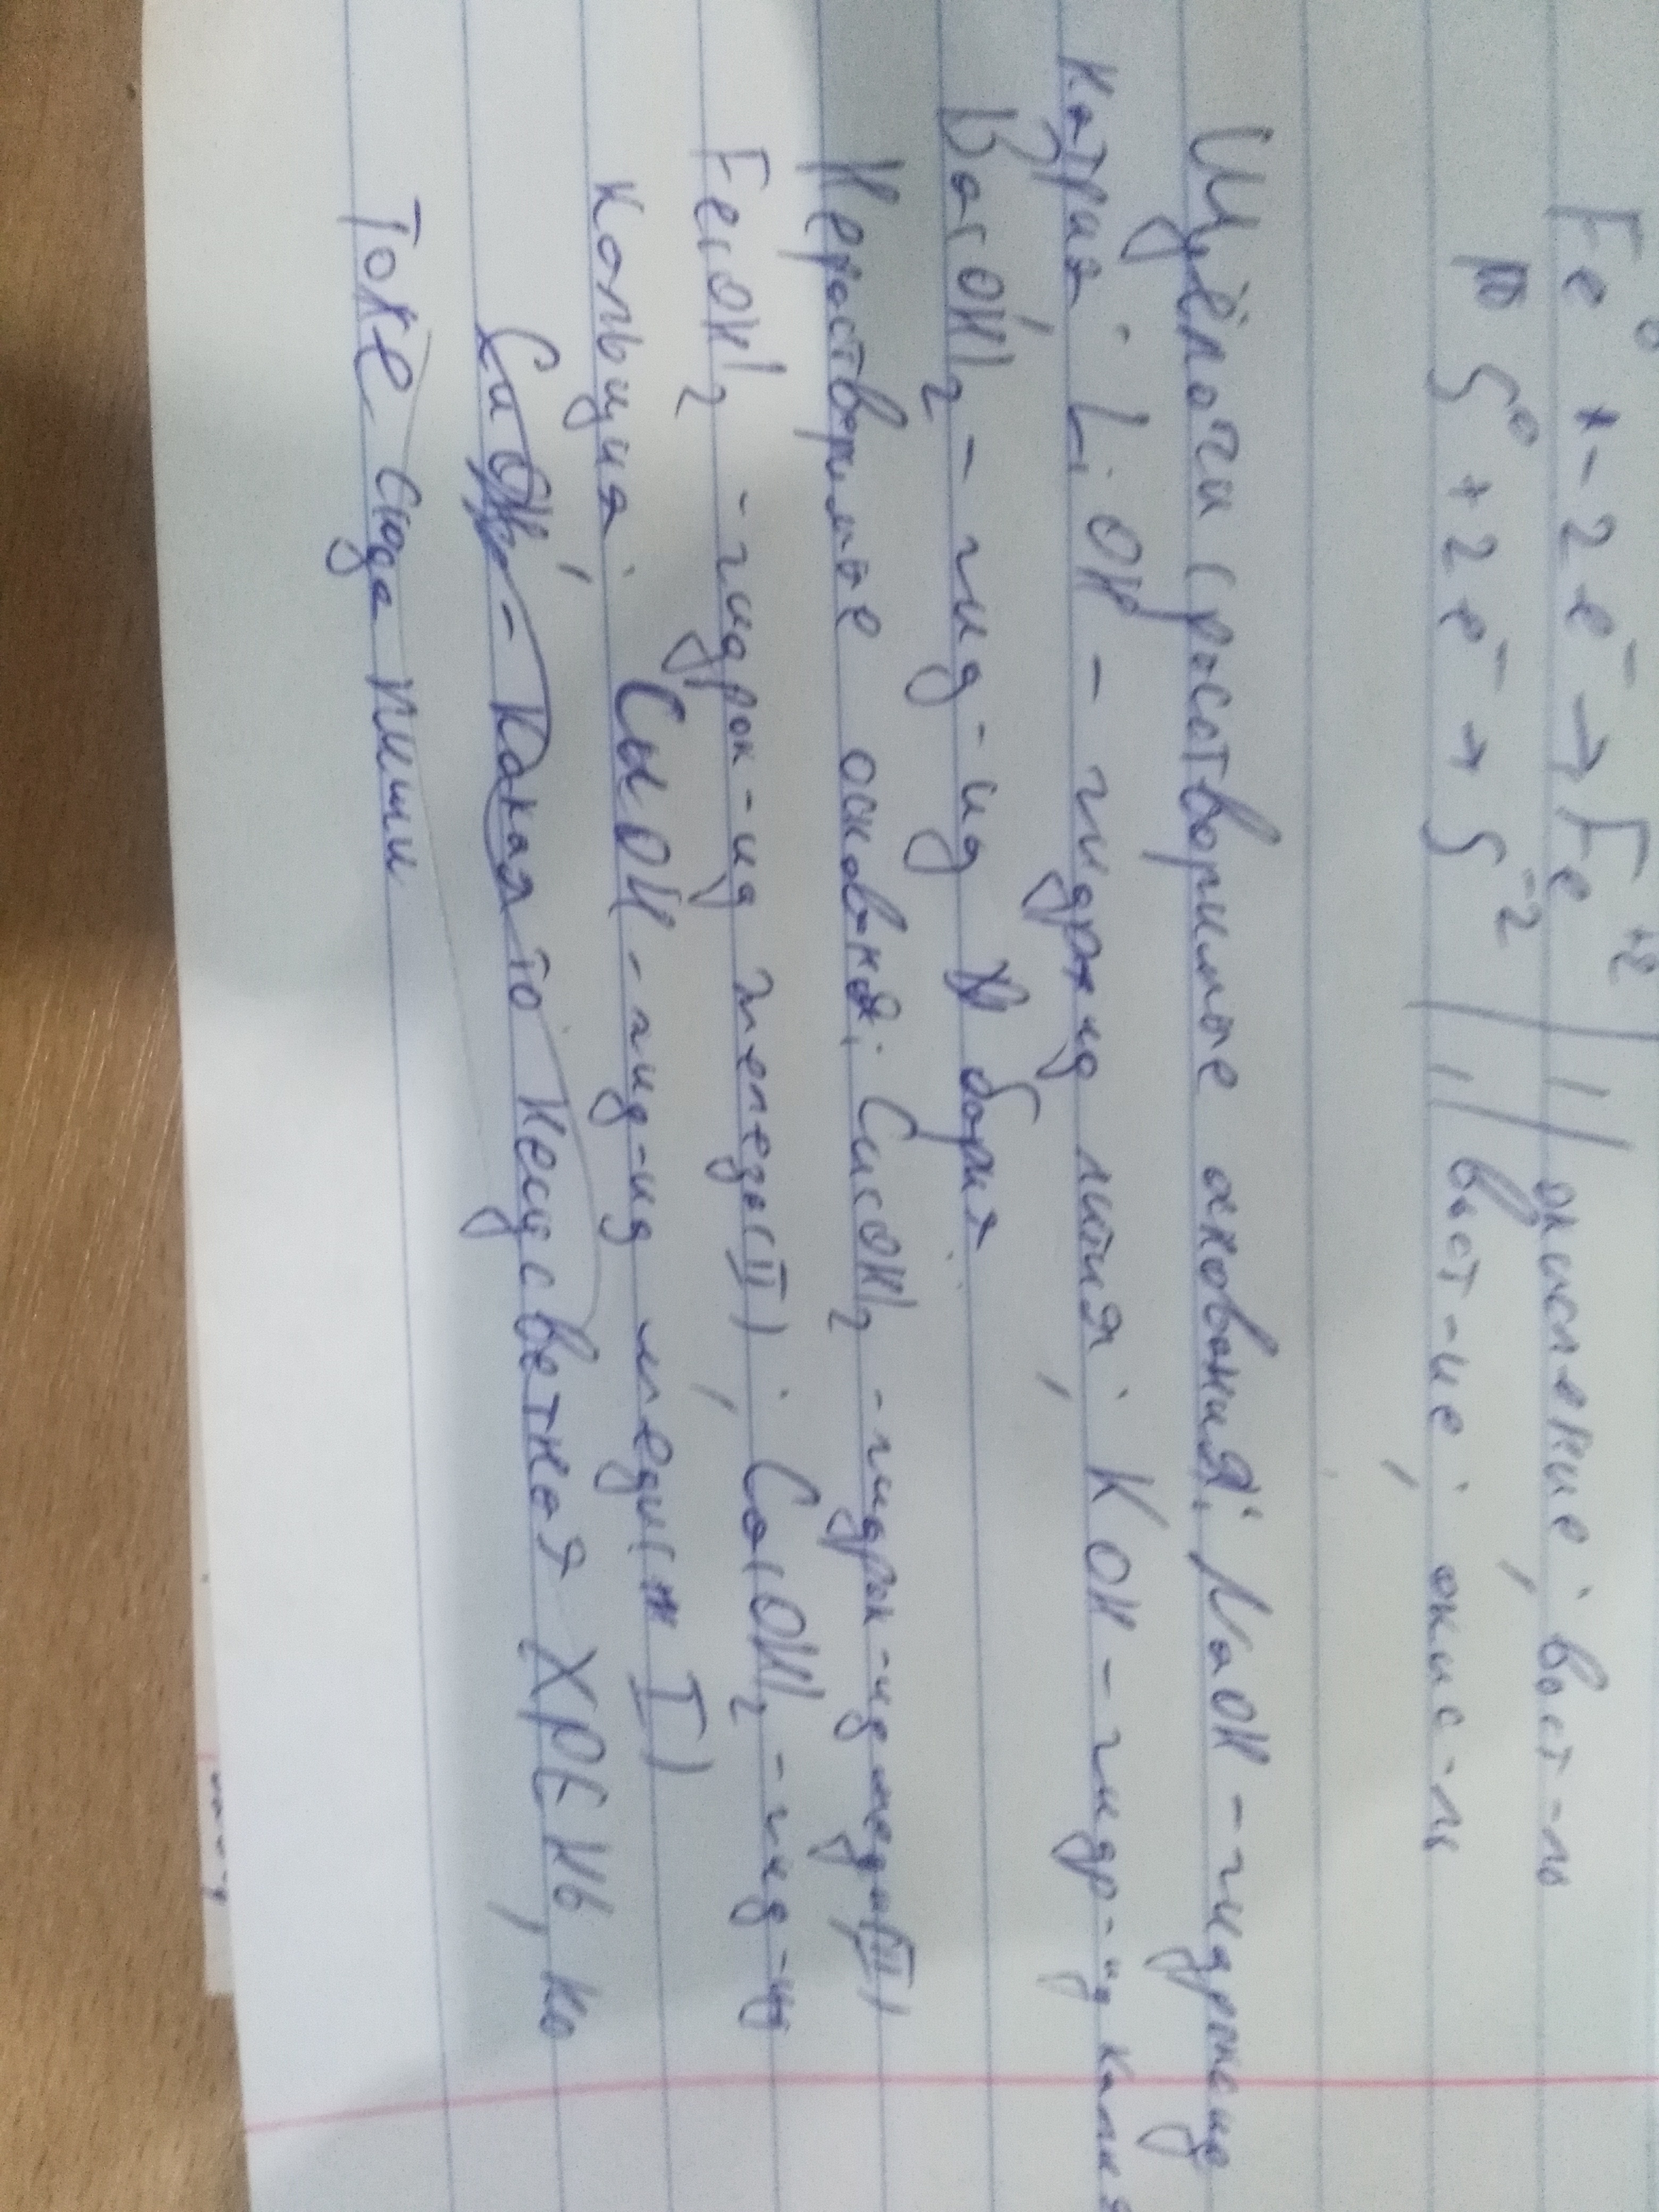 Fe⁰ - 2e⁻ → Fe⁺² | | окисление; вост-ль
S⁰ + 2e⁻ → S⁻² | | вост-ие; окис-ль
Щёлочи (растворимые основания: NaOH - гидроксид
натрия; LiOH - гидроксид лития; KOH - гидр-ид калия
Ba(OH)₂ - гид-ид бария
Нерастворимые основания: Cu(OH)₂ - гидрок-ид меди(II)
Fe(OH)₂ - гидрок-ид железа(II); Ca(OH)₂ - гид-ид
кольция; CuOH - гид-ид меди(I)
CuOH - Какая то несусветная ХРЕНЬ, но
тоже сюда пиши